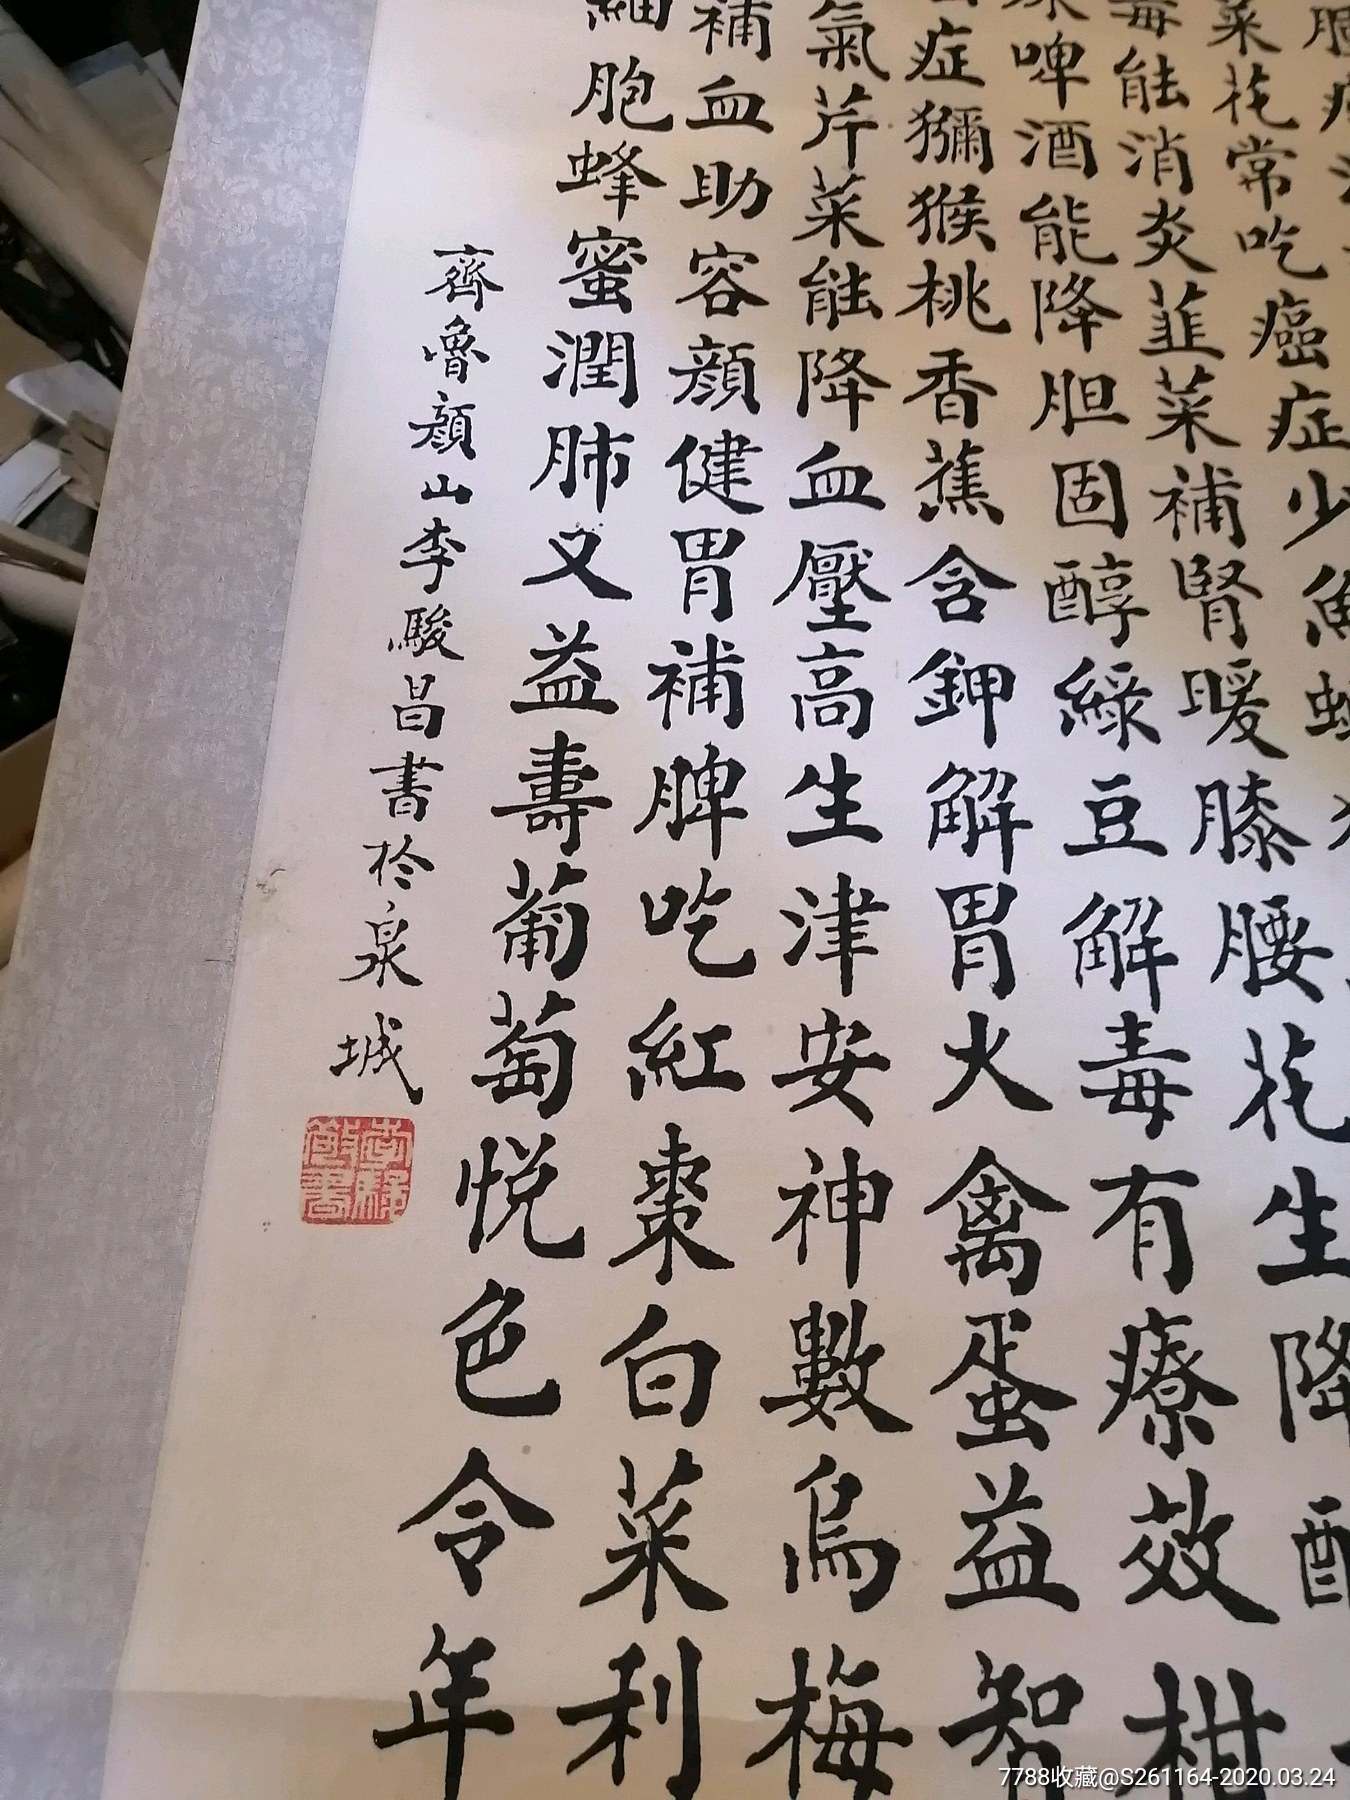 癌症少魚
菜花常吃癌症少魚
毒能消炎韮菜補腎暖膝腰花生降
啤酒能降胆固醇綠豆解毒有療效柑
症獼猴桃香蕉含鉀解胃火禽蛋益智
氣芹菜能降血壓高生津安神數烏梅
補血助容顏健胃補脾吃紅棗白菜利
細胞蜂蜜潤肺又益壽葡萄悦色令年
齊魯顏山李駿昌書於泉城
7788收藏@S261164-2020.03.24